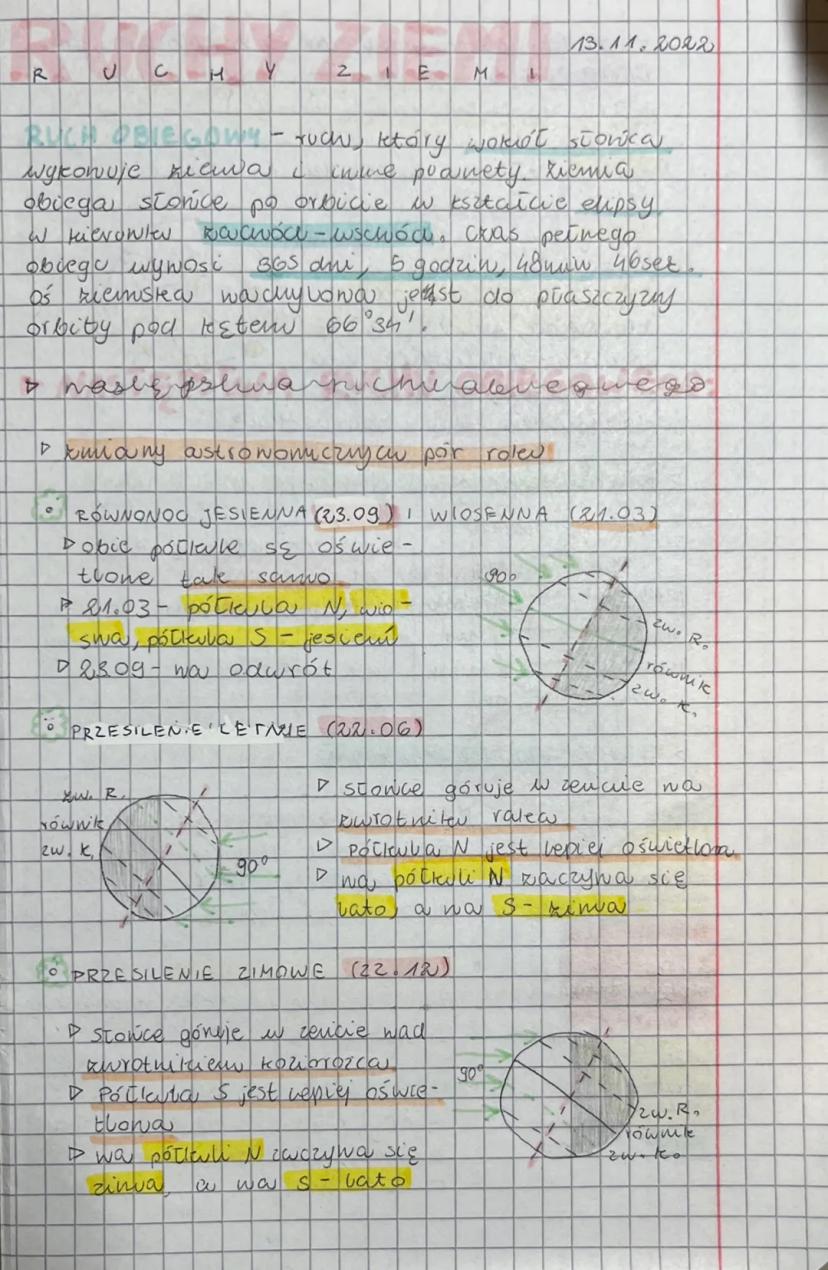 13.11.2022
RUCHY ZIEMI
RUCH OBIEGOWY - ruch, który wokół słońca
wykonuje ziemia i inne planety. Ziemia
obiega słońce po orbicie w kształcie elipsy
w kierunku zachód-wschód. Czas pełnego
obiegu wynosi 365 dni, 5 godzin, 48min 46sek.
Oś ziemska nachylona jest do płaszczyzny
orbity pod kątem 66°34'.
▷ następstwa ruchu obiegowego
▷ zmiany astronomicznych pór roku
RÓWNONOC JESIENNA (23.09) I WIOSENNA (21.03)
▷ obie półkule są oświe-
tlone tak samo
▷ 21.03 - półkula N, wio-
sna, półkula S - jesień
▷ 23.09 - na odwrót
90°
zw. R.
równik
zw. K.
PRZESILENIE LETNIE (22.06)
zw. R.
równik
zw. K.
90°
▷ słońce góruje w zenicie na
zwrotniku raka
▷ półkula N jest lepiej oświetlona
▷ na półkuli N zaczyna się
lato, a na S - zima
PRZESILENIE ZIMOWE (22.12)
▷ słońce góruje w zenicie nad
zwrotnikiem koziorożca
▷ półkula S jest lepiej oświe-
tlona
▷ na półkuli N zaczyna się
zima, a na S - lato
90°
zw. R.
równik
zw. K.